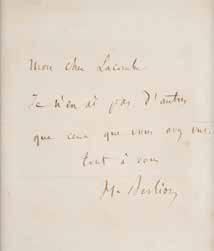 Mon cher Lacombe
Je n'en ai pas d'autres
que ceux que vous avez vus.
tout à vous
H. Berlioz